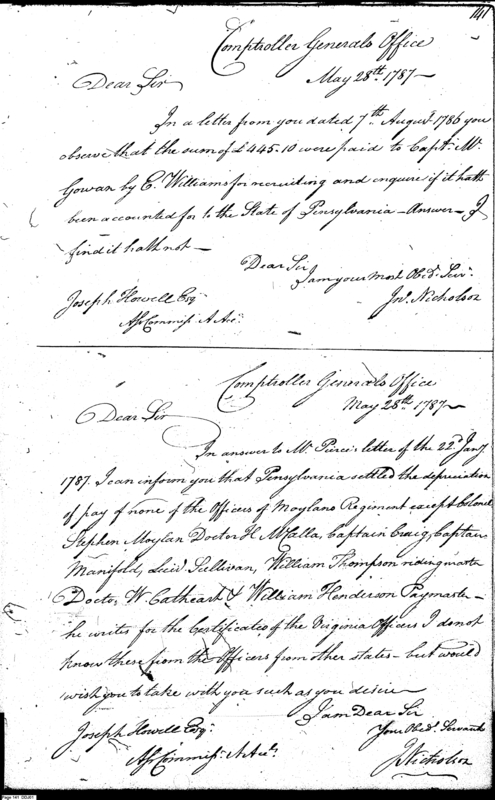 141
Comptroller Generals Office
May 28th 1787
Dear Sir
In a letter from you dated 7th August 1786 you
observe that the sum of £445.10 were paid to Capt. Mc
Gowan by E. Williams for recruiting and enquire if it hath
been accounted for to the State of Pensylvania – Answer – I
find it hath not –
Dear Sir
I am your Most Obed. Serv.
Jno. Nicholson
Joseph Howell Esq
Ass Commiss. A Acc.
Comptroller Generals Office
May 28th 1787
Dear Sir
In answer to Mr. Pierce's letter of the 22d Jany.
1787. I can inform you that Pensylvania settled the depreciation
of pay of none of the Officers of Moylans Regiment except Colonel
Stephen Moylan Doctor H McCalla, Captain Craig, Captain
Manifold, Lieut Sullivan, William Thompson riding master
Doctor W. Cathcart & William Henderson Paymaster –
he writes for the Certificates of the Virginia Officers I do not
know these from the Officers from other states – but would
wish you to take with you such as you desire
I am Dear Sir
Your Obed. Servant
JNicholson
Joseph Howell Esq.
Ass Commiss. A Accts.
Page 141 DDJ01